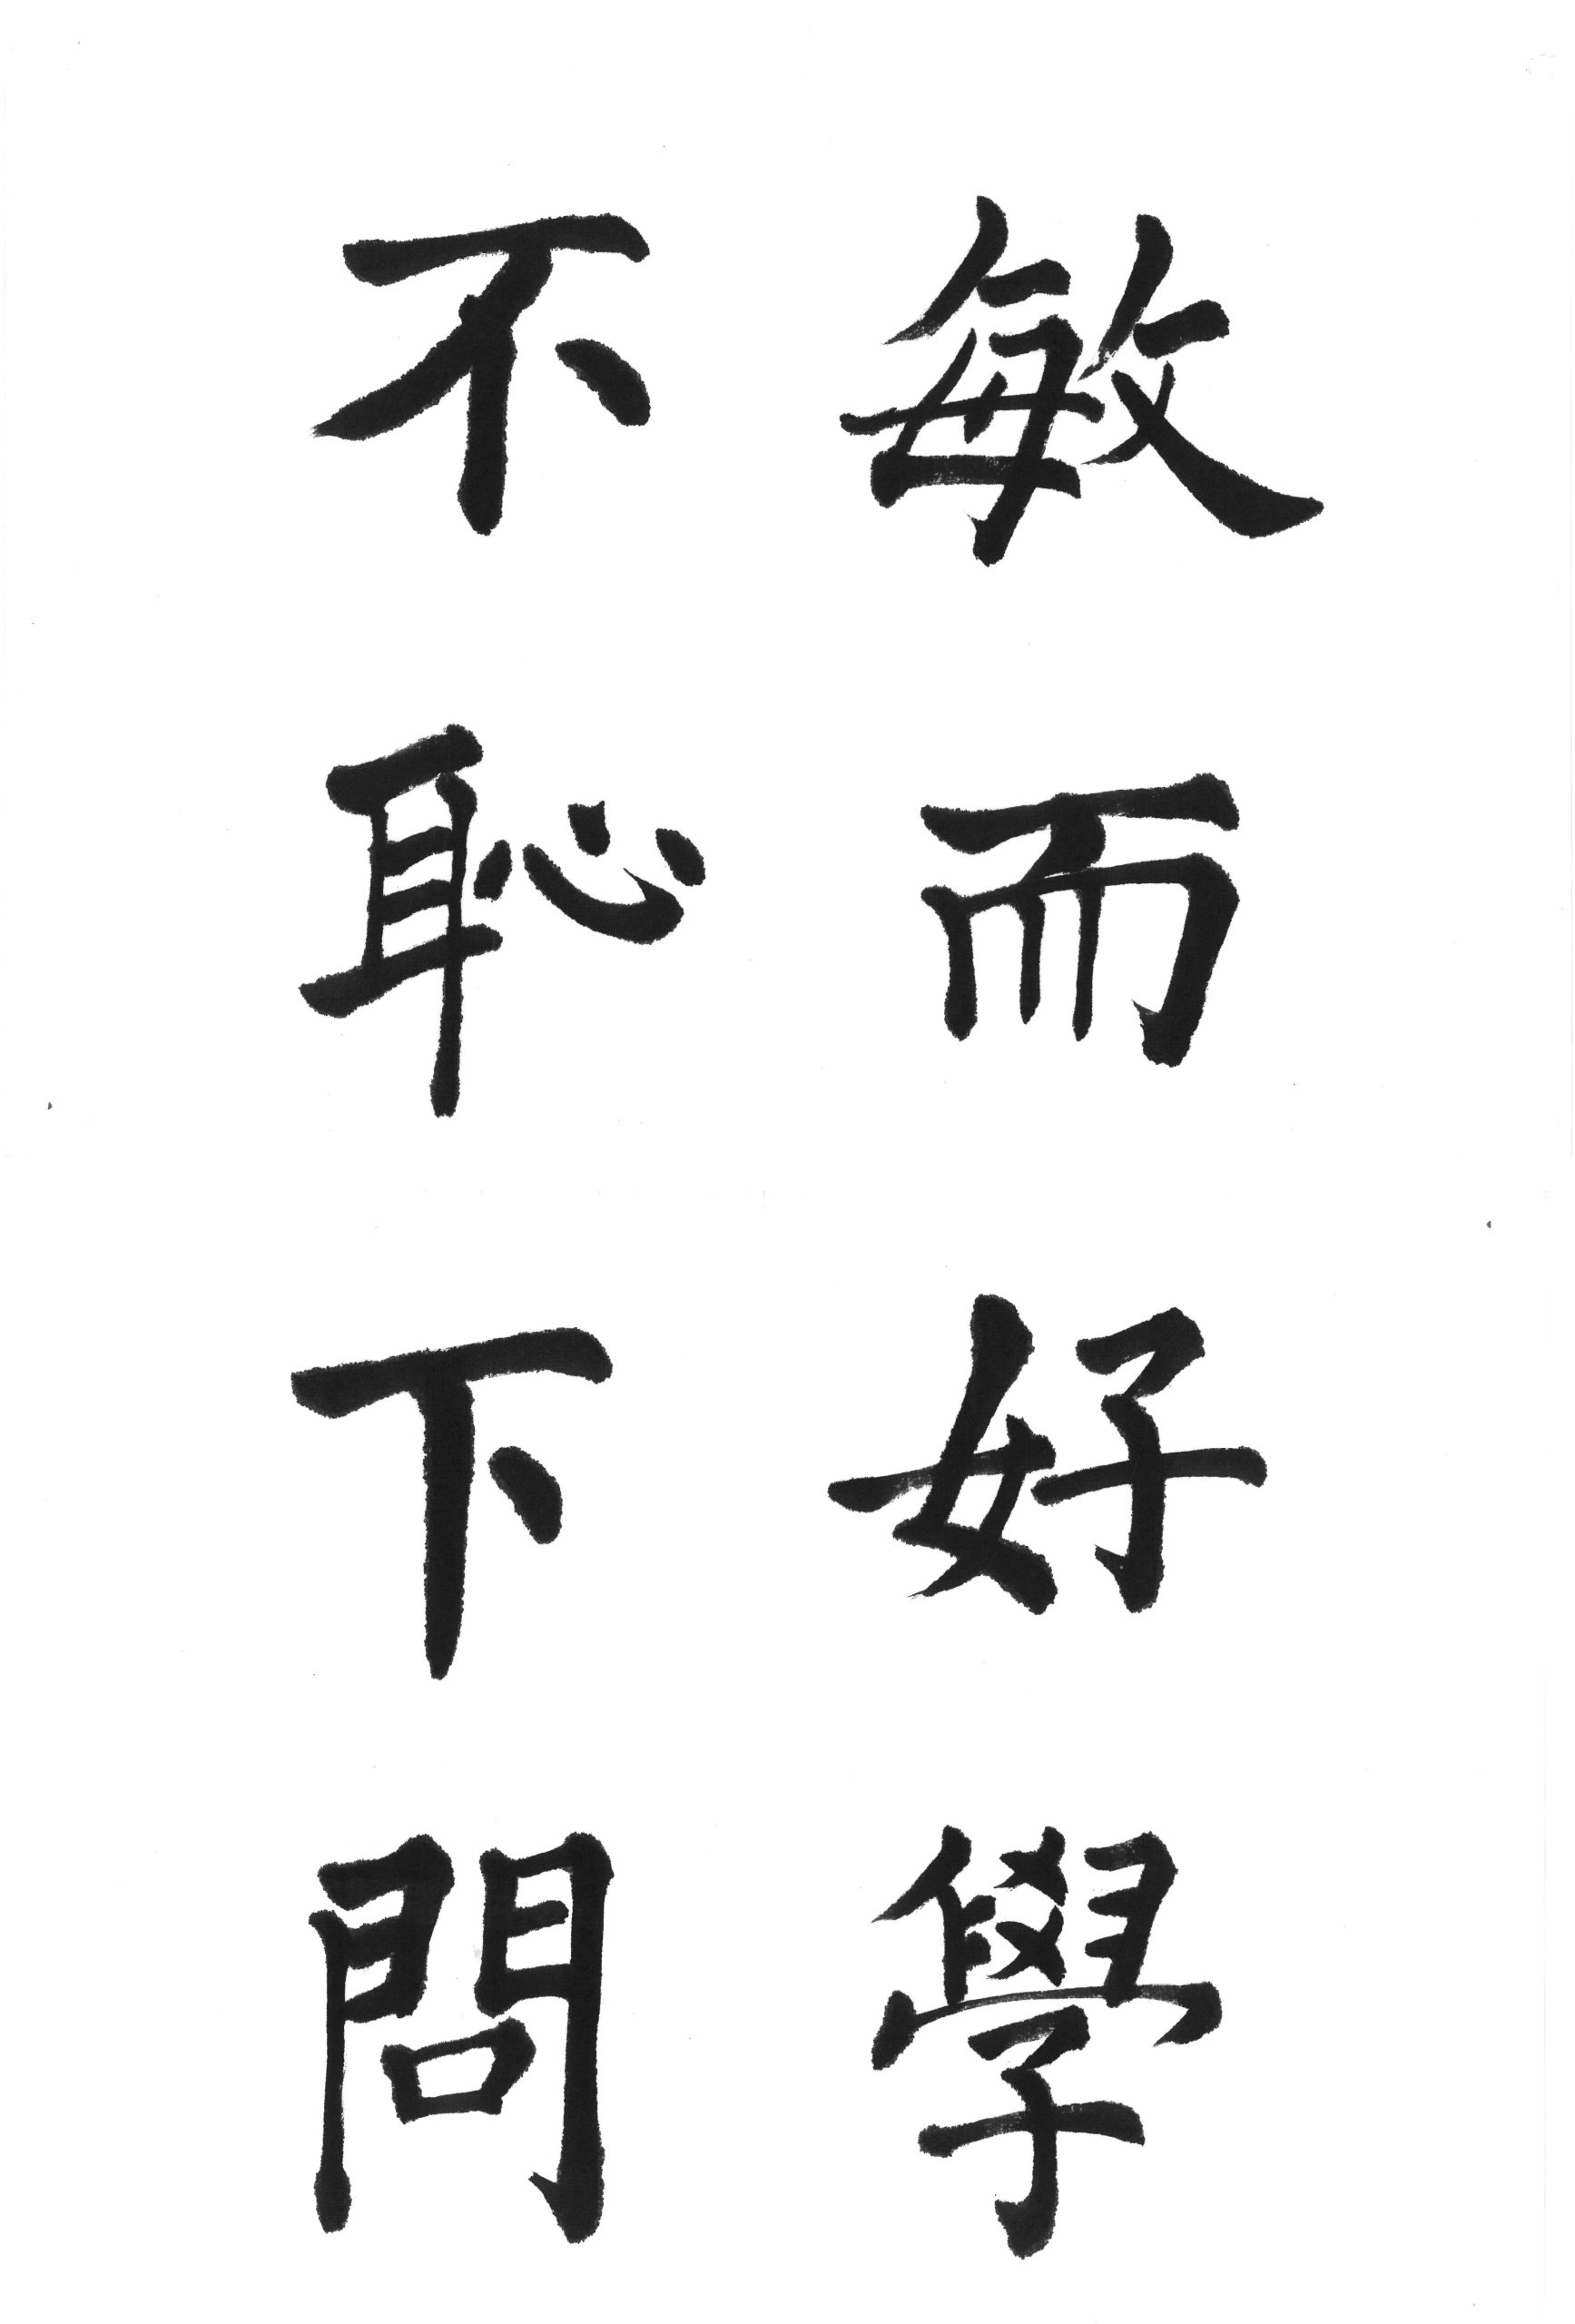 敏而好學
不恥下問